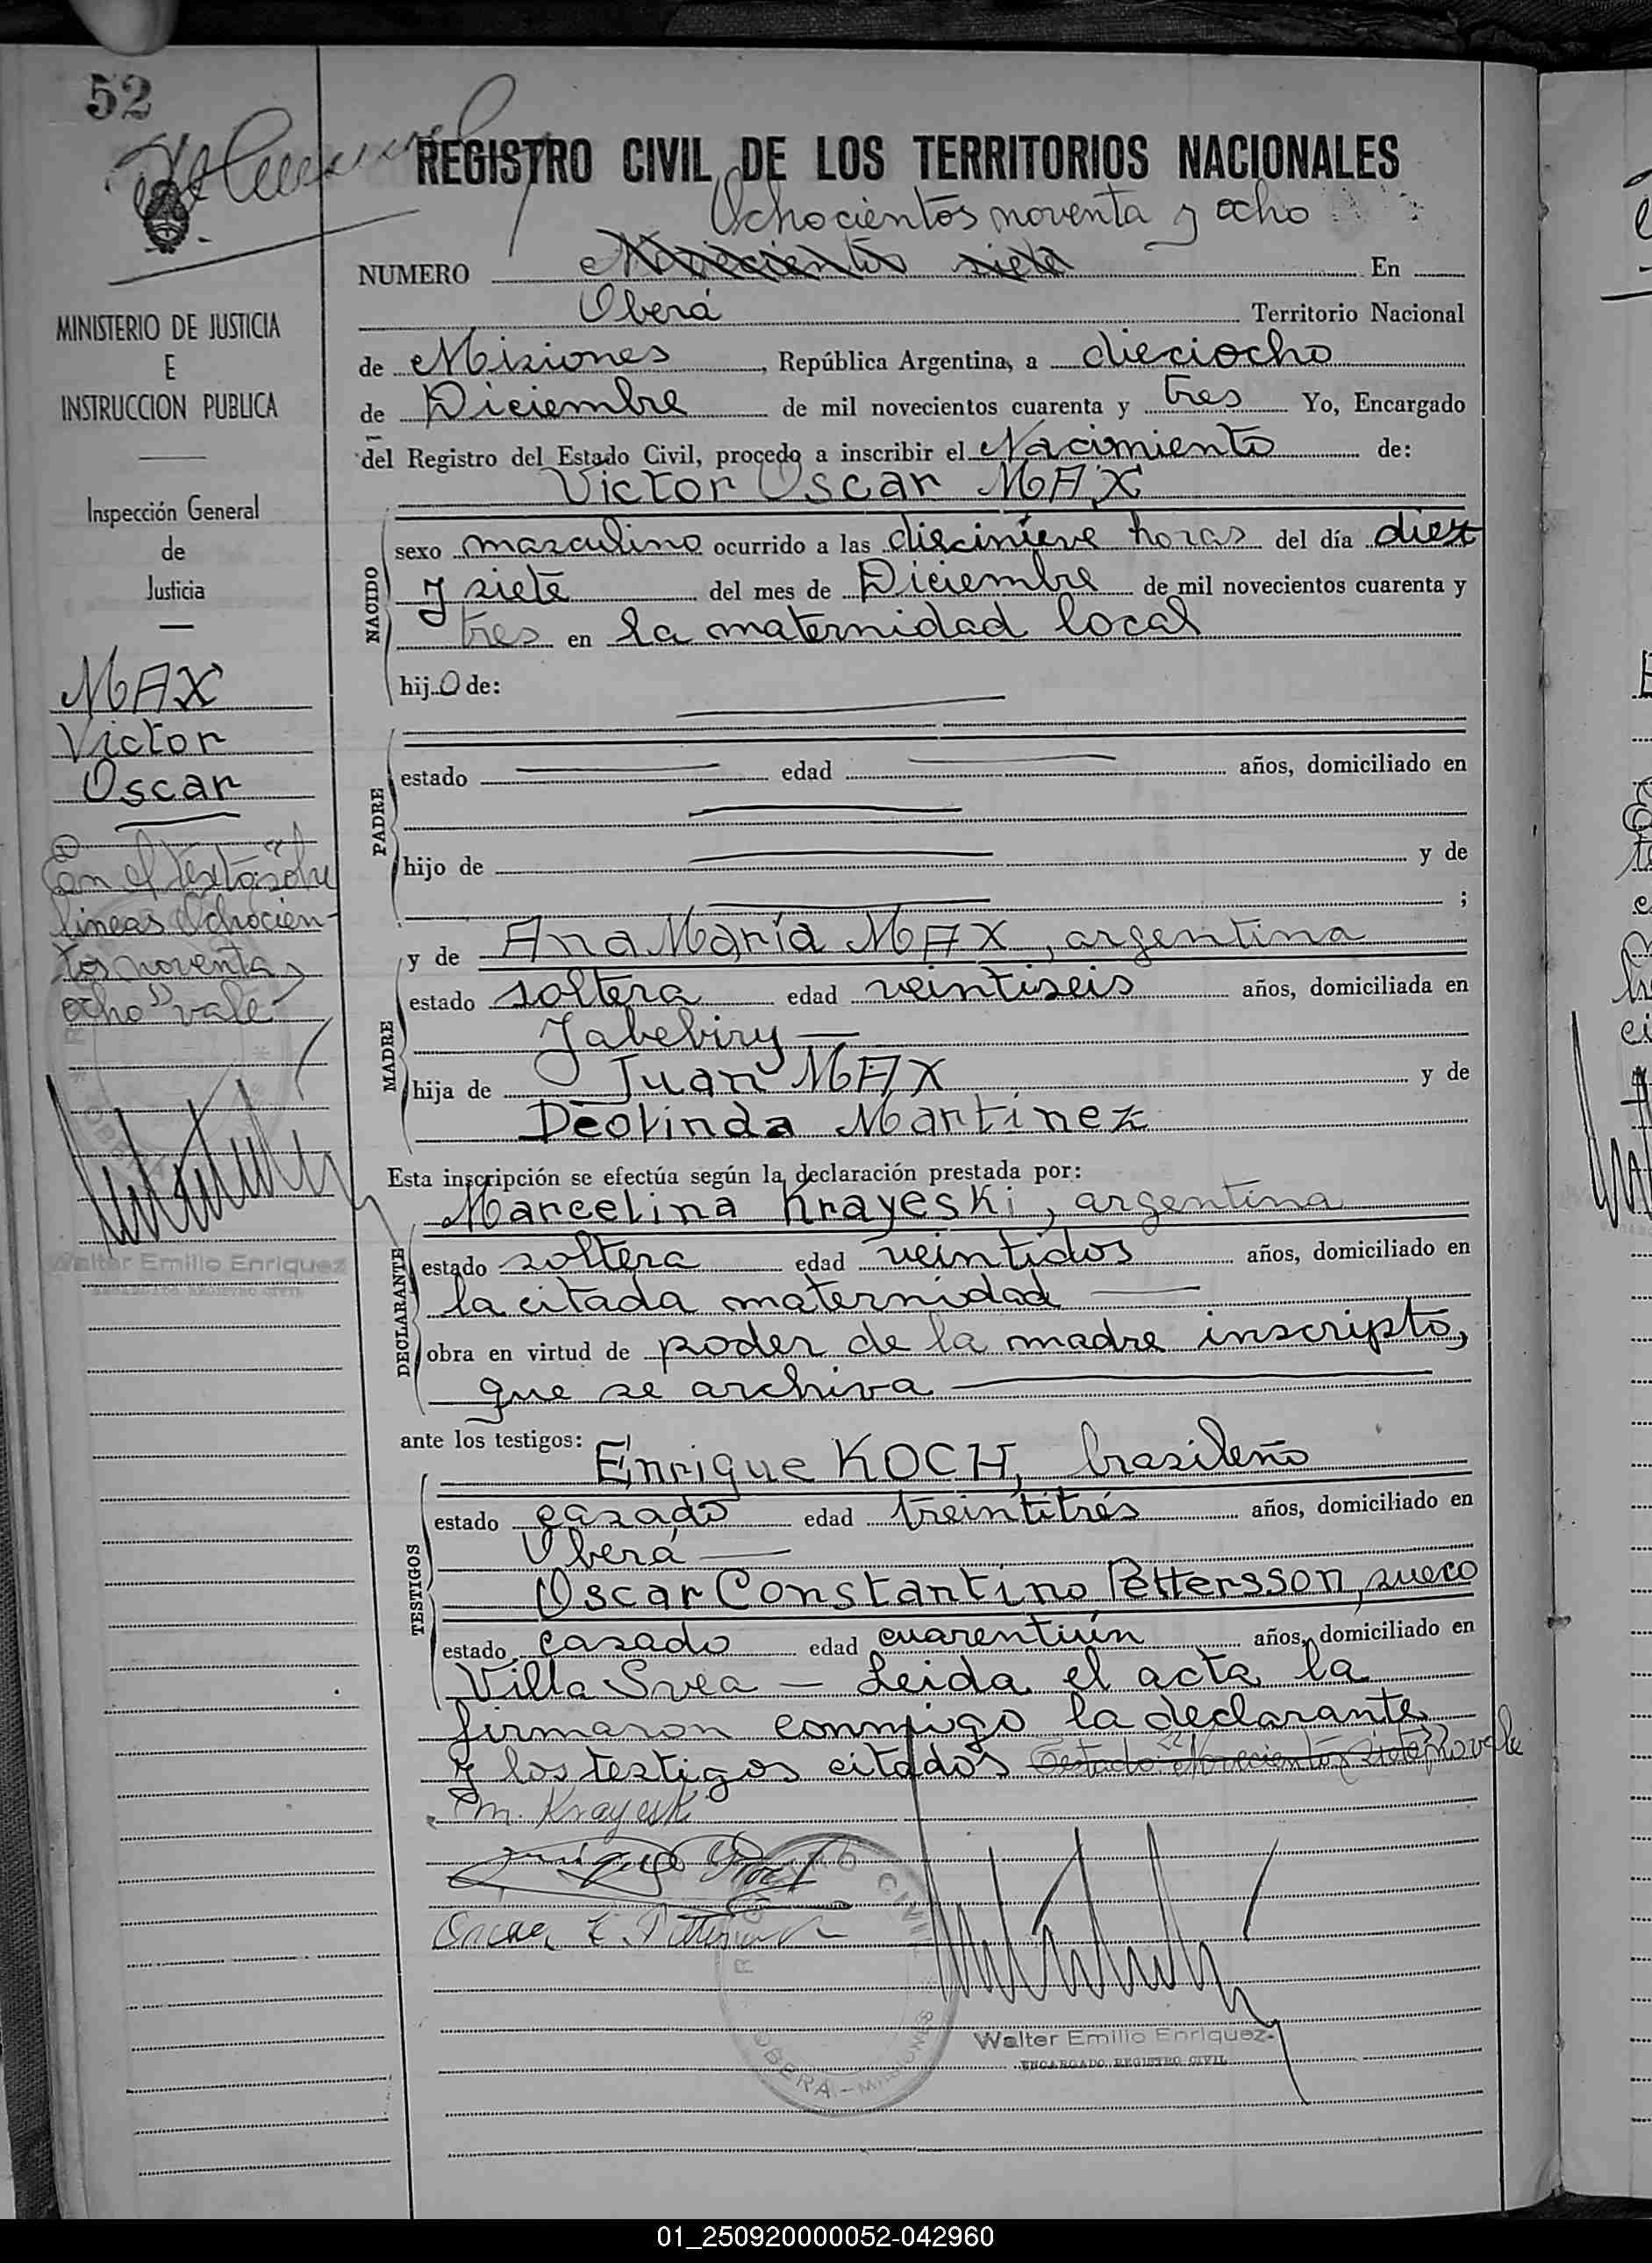 52
REGISTRO CIVIL DE LOS TERRITORIOS NACIONALES
Ochocientos noventa y ocho
NUMERO Novecientos siete En
Oberá Territorio Nacional
de Misiones, República Argentina, a dieciocho
de Diciembre de mil novecientos cuarenta y tres Yo, Encargado
del Registro del Estado Civil, procedo a inscribir el Nacimiento de:
Victor Oscar MAX
NACIDO
sexo masculino ocurrido a las diecinieve horas del día diez
y siete del mes de Diciembre de mil novecientos cuarenta y
tres en la maternidad local
hijo de:
PADRE
estado edad años, domiciliado en
hijo de y de
;
y de Ana María MAX, argentina
MADRE
estado soltera edad veintiseis años, domiciliada en
Jabebiry
hija de Juan MAX y de
Deolinda Martinez
Esta inscripción se efectúa según la declaración prestada por:
Marcelina Krayeski, argentina
DECLARANTE
estado soltera edad veintidos años, domiciliado en
la citada maternidad
obra en virtud de poder de la madre inscripto,
que se archiva
ante los testigos:
Enrique KOCH, brasileño
TESTIGOS
estado casado edad treintitrés años, domiciliado en
Oberá
Oscar Constantino Pettersson, sueco
estado casado edad cuarentiún años, domiciliado en
Villa Svea — Leida el acta la
firmaron conmigo la declarante
y los testigos citados Testado "Novecientos siete" no vale
m. Krayeski
REGISTRO CIVIL
OBERÁ - MISIONES
Walter Emilio Enriquez
ENCARGADO REGISTRO CIVIL
MINISTERIO DE JUSTICIA
E
INSTRUCCION PUBLICA
Inspección General
de
Justicia
MAX
Victor
Oscar
En el texto sobre
lineas "Ochocien-
tos noventa y
ocho" vale
Walter Emilio Enriquez
ENCARGADO REGISTRO CIVIL
01_250920000052-042960